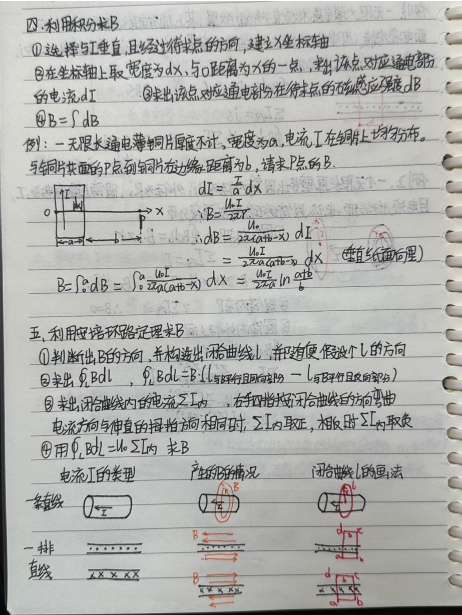 四. 利用积分求B
①选择与I垂直,且经过待求点的方向,建立X坐标轴
②在坐标轴上取宽度为dx,与O距离为x的一点,求出该点对应通电部分
的电流dI ③求出该点对应通电部分在待求点的磁感应强度dB
④B=∫dB
例:一无限长通电薄铜片厚度不计,宽度为a,电流I在铜片上均匀分布。
与铜片共面的P点到铜片右边缘距离为b,请求P点的B.
dI = I/a dx
I
O x P
a b
∴B = u₀I/2πr
∴dB = u₀/2π(a+b-x) dI
= u₀I/2πa(a+b-x) dx (垂直纸面向里)
B=∫₀ᵃdB = ∫₀ᵃ u₀I/2πa(a+b-x) dx = u₀I/2πa ln (a+b)/b
五. 利用安培环路定理求B
①判断出B的方向,并构造出闭合曲线l,并没有使假设个l的方向
②求出∮ₗBdl , ∮ₗBdl=B·(l与B平行且同向部分 - l与B平行且反向部分)
③求出闭合曲线内的电流ΣI内 , 右手四指按闭合曲线的方向弯曲
电流方向与伸直的拇指方向相同时,ΣI内取正,相反时ΣI内取负
④用∮ₗBdl=u₀ΣI内 求B
电流I的类型 产生的B的情况 闭合曲线l的画法
一条直线 I B l
一排
直线 B
d c
a b